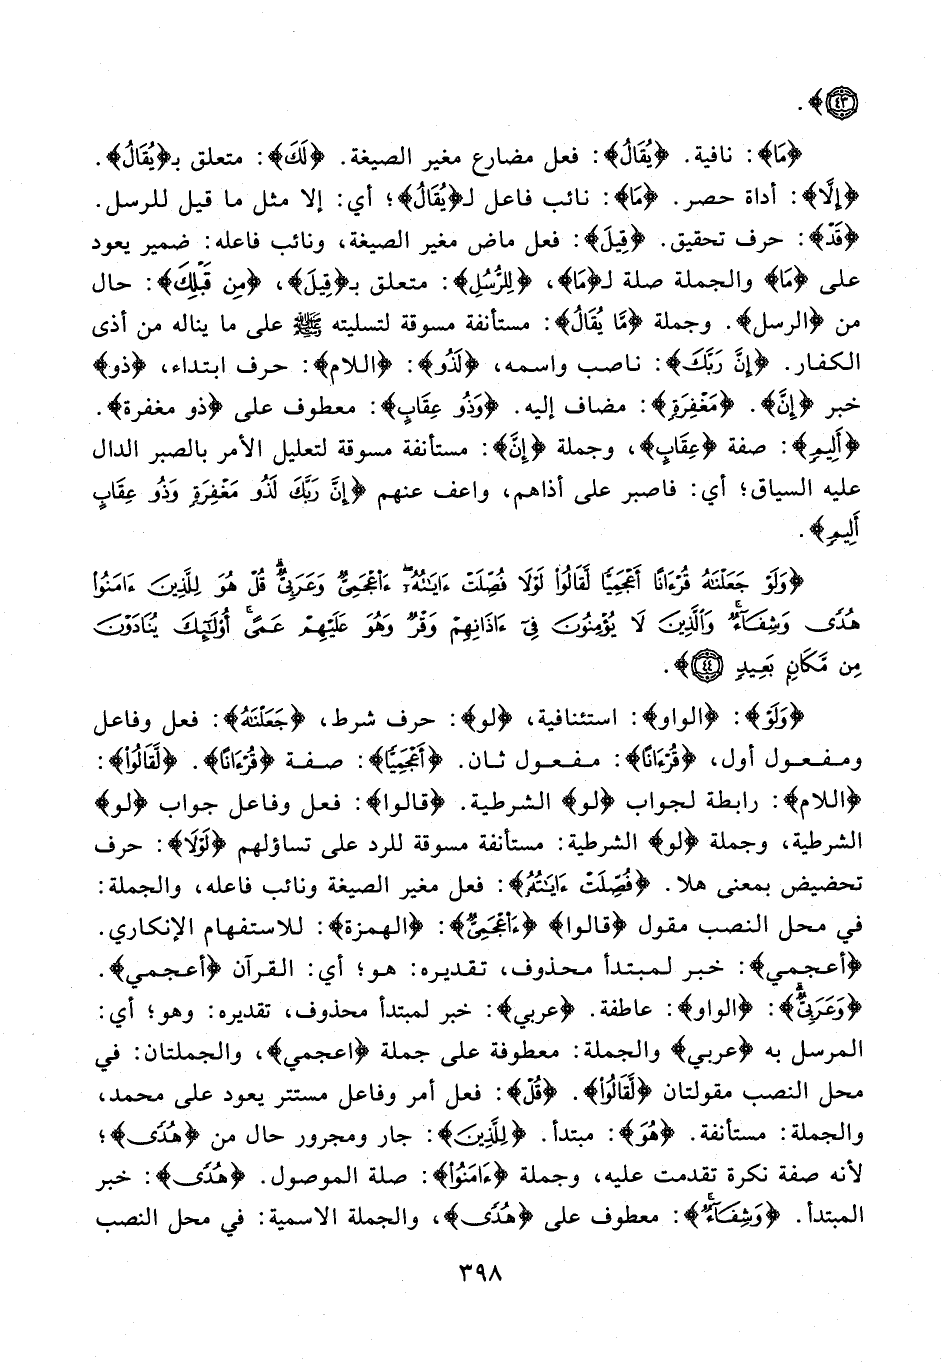 ﴿٤٣﴾.
﴿مَا﴾: نافية. ﴿يُقَالُ﴾: فعل مضارع مغير الصيغة. ﴿لَكَ﴾: متعلق بـ﴿يُقَالُ﴾.
﴿إِلَّا﴾: أداة حصر. ﴿مَا﴾: نائب فاعل لـ﴿يُقَالُ﴾؛ أي: إلا مثل ما قيل للرسل.
﴿قَدْ﴾: حرف تحقيق. ﴿قِيلَ﴾: فعل ماض مغير الصيغة، ونائب فاعله: ضمير يعود
على ﴿مَا﴾ والجملة صلة لـ﴿مَا﴾، ﴿لِلرُّسُلِ﴾: متعلق بـ﴿قِيلَ﴾، ﴿مِن قَبْلِكَ﴾: حال
من ﴿الرسل﴾. وجملة ﴿مَّا يُقَالُ﴾: مستأنفة مسوقة لتسليته ﷺ على ما يناله من أذى
الكفار. ﴿إِنَّ رَبَّكَ﴾: ناصب واسمه، ﴿لَذُو﴾: ﴿اللام﴾: حرف ابتداء، ﴿ذو﴾
خبر ﴿إِنَّ﴾. ﴿مَغْفِرَةٍ﴾: مضاف إليه. ﴿وَذُو عِقَابٍ﴾: معطوف على ﴿ذو مغفرة﴾.
﴿أَلِيمٍ﴾: صفة ﴿عِقَابٍ﴾، وجملة ﴿إِنَّ﴾: مستأنفة مسوقة لتعليل الأمر بالصبر الدال
عليه السياق؛ أي: فاصبر على أذاهم، واعف عنهم ﴿إِنَّ رَبَّكَ لَذُو مَغْفِرَةٍ وَذُو عِقَابٍ
أَلِيمٍ﴾.
﴿وَلَوْ جَعَلْنَٰهُ قُرْءَانًا أَعْجَمِيًّا لَّقَالُوا۟ لَوْلَا فُصِّلَتْ ءَايَٰتُهُۥٓ ءَا۬عْجَمِىٌّ وَعَرَبِىٌّ ۗ قُلْ هُوَ لِلَّذِينَ ءَامَنُوا۟
هُدًى وَشِفَآءٌ ۖ وَٱلَّذِينَ لَا يُؤْمِنُونَ فِىٓ ءَاذَانِهِمْ وَقْرٌ وَهُوَ عَلَيْهِمْ عَمًى ۚ أُو۟لَٰٓئِكَ يُنَادَوْنَ
مِن مَّكَانٍ بَعِيدٍ ﴿٤٤﴾.
﴿وَلَوْ﴾: ﴿الواو﴾: استئنافية، ﴿لو﴾: حرف شرط، ﴿جَعَلْنَٰهُ﴾: فعل وفاعل
ومفعول أول، ﴿قُرْءَانًا﴾: مفعول ثان. ﴿أَعْجَمِيًّا﴾: صفة ﴿قُرْءَانًا﴾. ﴿لَّقَالُوا۟﴾:
﴿اللام﴾: رابطة لجواب ﴿لو﴾ الشرطية. ﴿قالوا﴾: فعل وفاعل جواب ﴿لو﴾
الشرطية، وجملة ﴿لو﴾ الشرطية: مستأنفة مسوقة للرد على تساؤلهم ﴿لَوْلَا﴾: حرف
تحضيض بمعنى هلا. ﴿فُصِّلَتْ ءَايَٰتُهُۥ﴾: فعل مغير الصيغة ونائب فاعله، والجملة:
في محل النصب مقول ﴿قالوا﴾ ﴿ءَا۬عْجَمِىٌّ﴾: ﴿الهمزة﴾: للاستفهام الإنكاري.
﴿أعجمي﴾: خبر لمبتدأ محذوف، تقديره: هو؛ أي: القرآن ﴿أعجمي﴾.
﴿وَعَرَبِىٌّ ۗ﴾: ﴿الواو﴾: عاطفة. ﴿عربي﴾: خبر لمبتدأ محذوف، تقديره: وهو؛ أي:
المرسل به ﴿عربي﴾ والجملة: معطوفة على جملة ﴿اعجمي﴾، والجملتان: في
محل النصب مقولتان ﴿لَّقَالُوا۟﴾. ﴿قُلْ﴾: فعل أمر وفاعل مستتر يعود على محمد،
والجملة: مستأنفة. ﴿هُوَ﴾: مبتدأ. ﴿لِلَّذِينَ﴾: جار ومجرور حال من ﴿هُدًى﴾؛
لأنه صفة نكرة تقدمت عليه، وجملة ﴿ءَامَنُوا۟﴾: صلة الموصول. ﴿هُدًى﴾: خبر
المبتدأ. ﴿وَشِفَآءٌ ۚ﴾: معطوف على ﴿هُدًى﴾، والجملة الاسمية: في محل النصب
٣٩٨